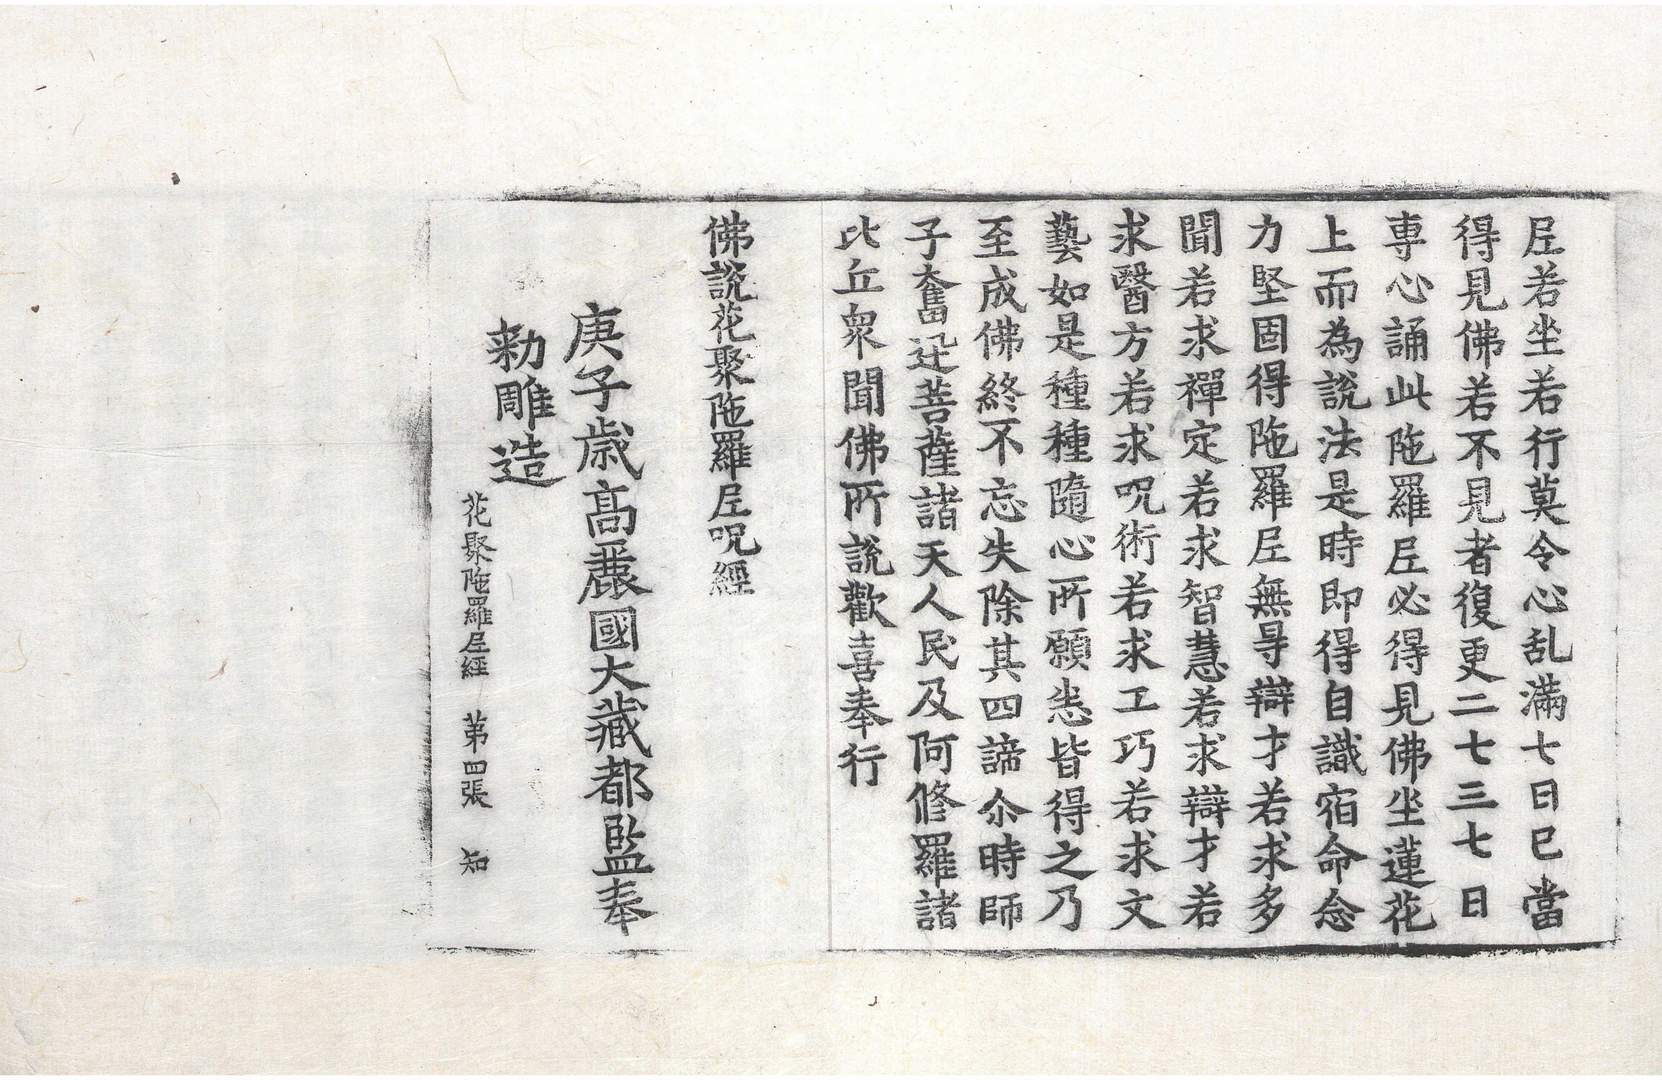 𡰱若坐若行莫令心乱滿七日已當
得見佛若不見者復更二七三七日
専心誦此陁羅𡰱必得見佛坐蓮花
上而為說法是時即得自識宿命念
力堅固得陁羅𡰱無㝵辯才若求多
聞若求禪定若求智慧若求辯才若
求醫方若求呪術若求工巧若求文
藝如是種種隨心所願悉皆得之乃
至成佛終不忘失除其四諦尒時師
子奮迅菩薩諸天人民及阿脩羅諸
比丘衆聞佛所說歡喜奉行
佛說花聚陁羅𡰱呪經
庚子歲高麗國大藏都監奉
勑雕造
花聚陁羅𡰱經 第四張 知